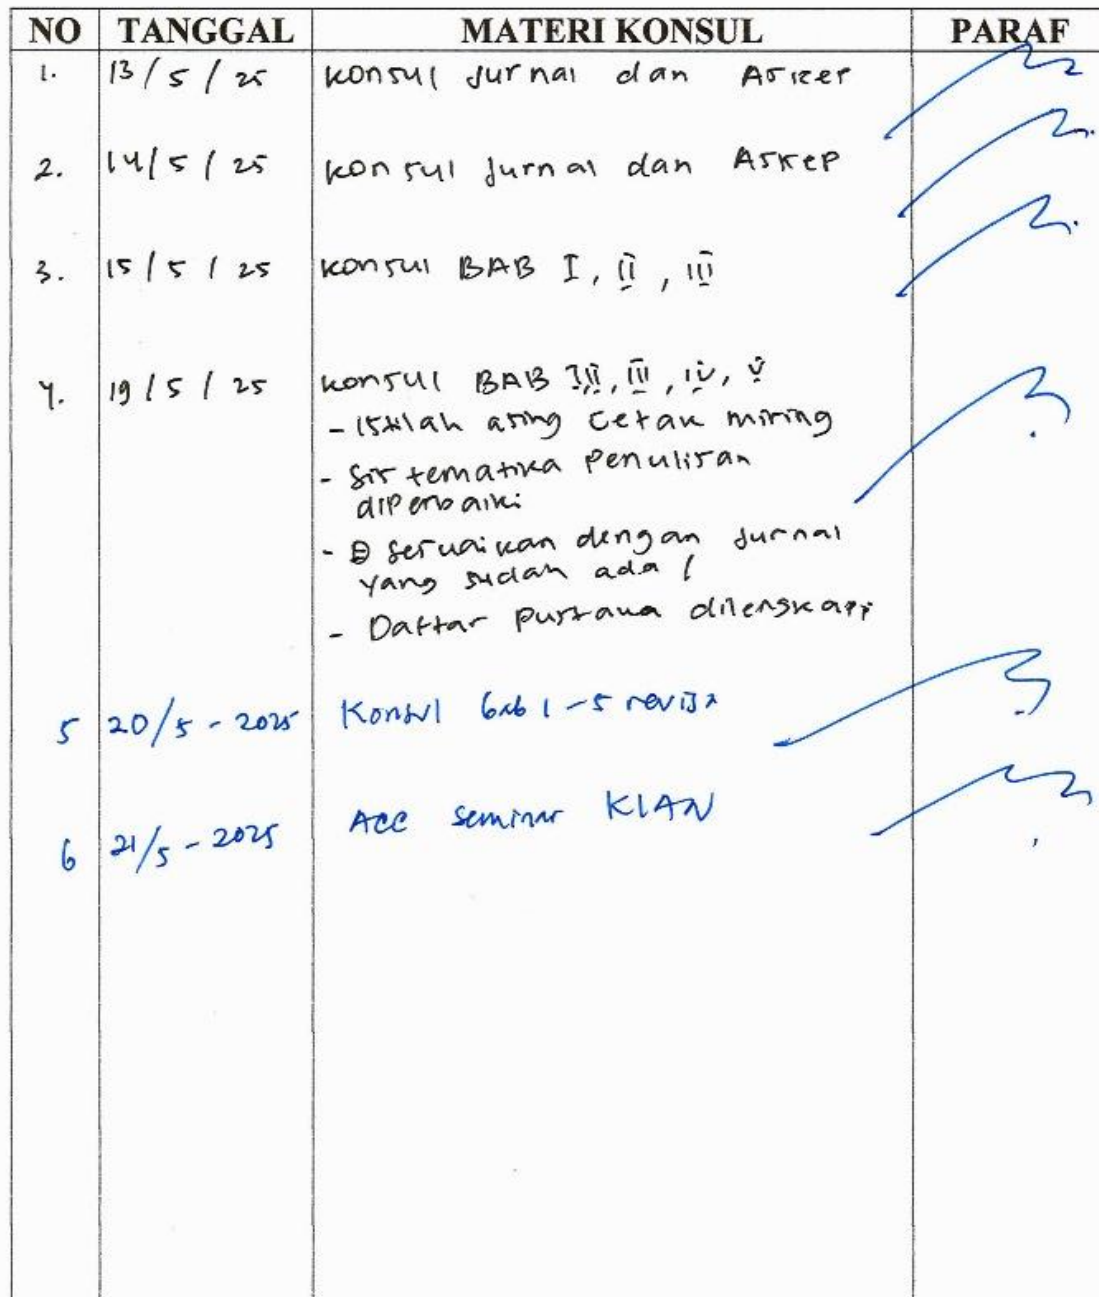 NO TANGGAL MATERI KONSUL PARAF
1. 13/5/25 konsul Jurnal dan Askep
2. 14/5/25 konsul Jurnal dan Askep
3. 15/5/25 konsul BAB I, II, III
4. 19/5/25 konsul BAB I, II, III, IV, V
- Istilah asing cetak miring
- Sistematika Penulisan
diperbaiki
- sesuaikan dengan Jurnal
yang sudah ada /
- Daftar Pustaka dilengkapi
5 20/5-2025 Konsul bab 1-5 revisi
6 21/5-2025 Acc seminar KIAN